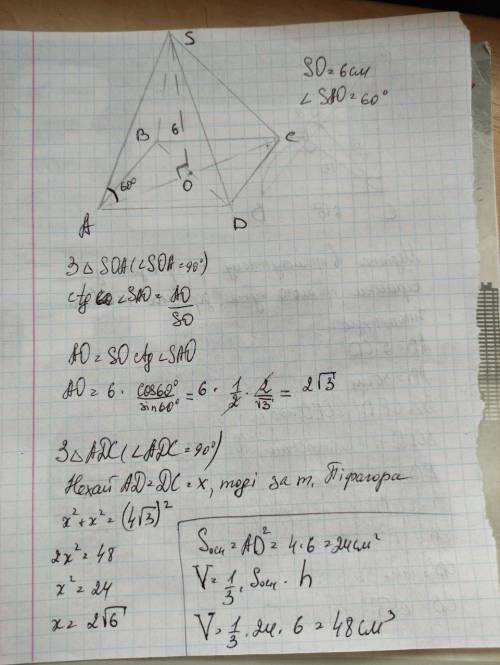 S
SO = 6 см
∠ SAO = 60°
B 6 C
60° O
A D
З △ SOA (∠SOA = 90°)
ctg ∠SAO = AO/SO
AO = SO ctg ∠SAO
AO = 6 · cos60°/sin60° = 6 · 1/2 · 2/√3 = 2√3
З △ ADC (∠ADC = 90°)
Нехай AD = DC = x, тоді за т. Піфагора
x² + x² = (4√3)²
2x² = 48
x² = 24
x = 2√6
Sосн = AD² = 4 · 6 = 24 см²
V = 1/3 · Sосн · h
V = 1/3 · 24 · 6 = 48 см³